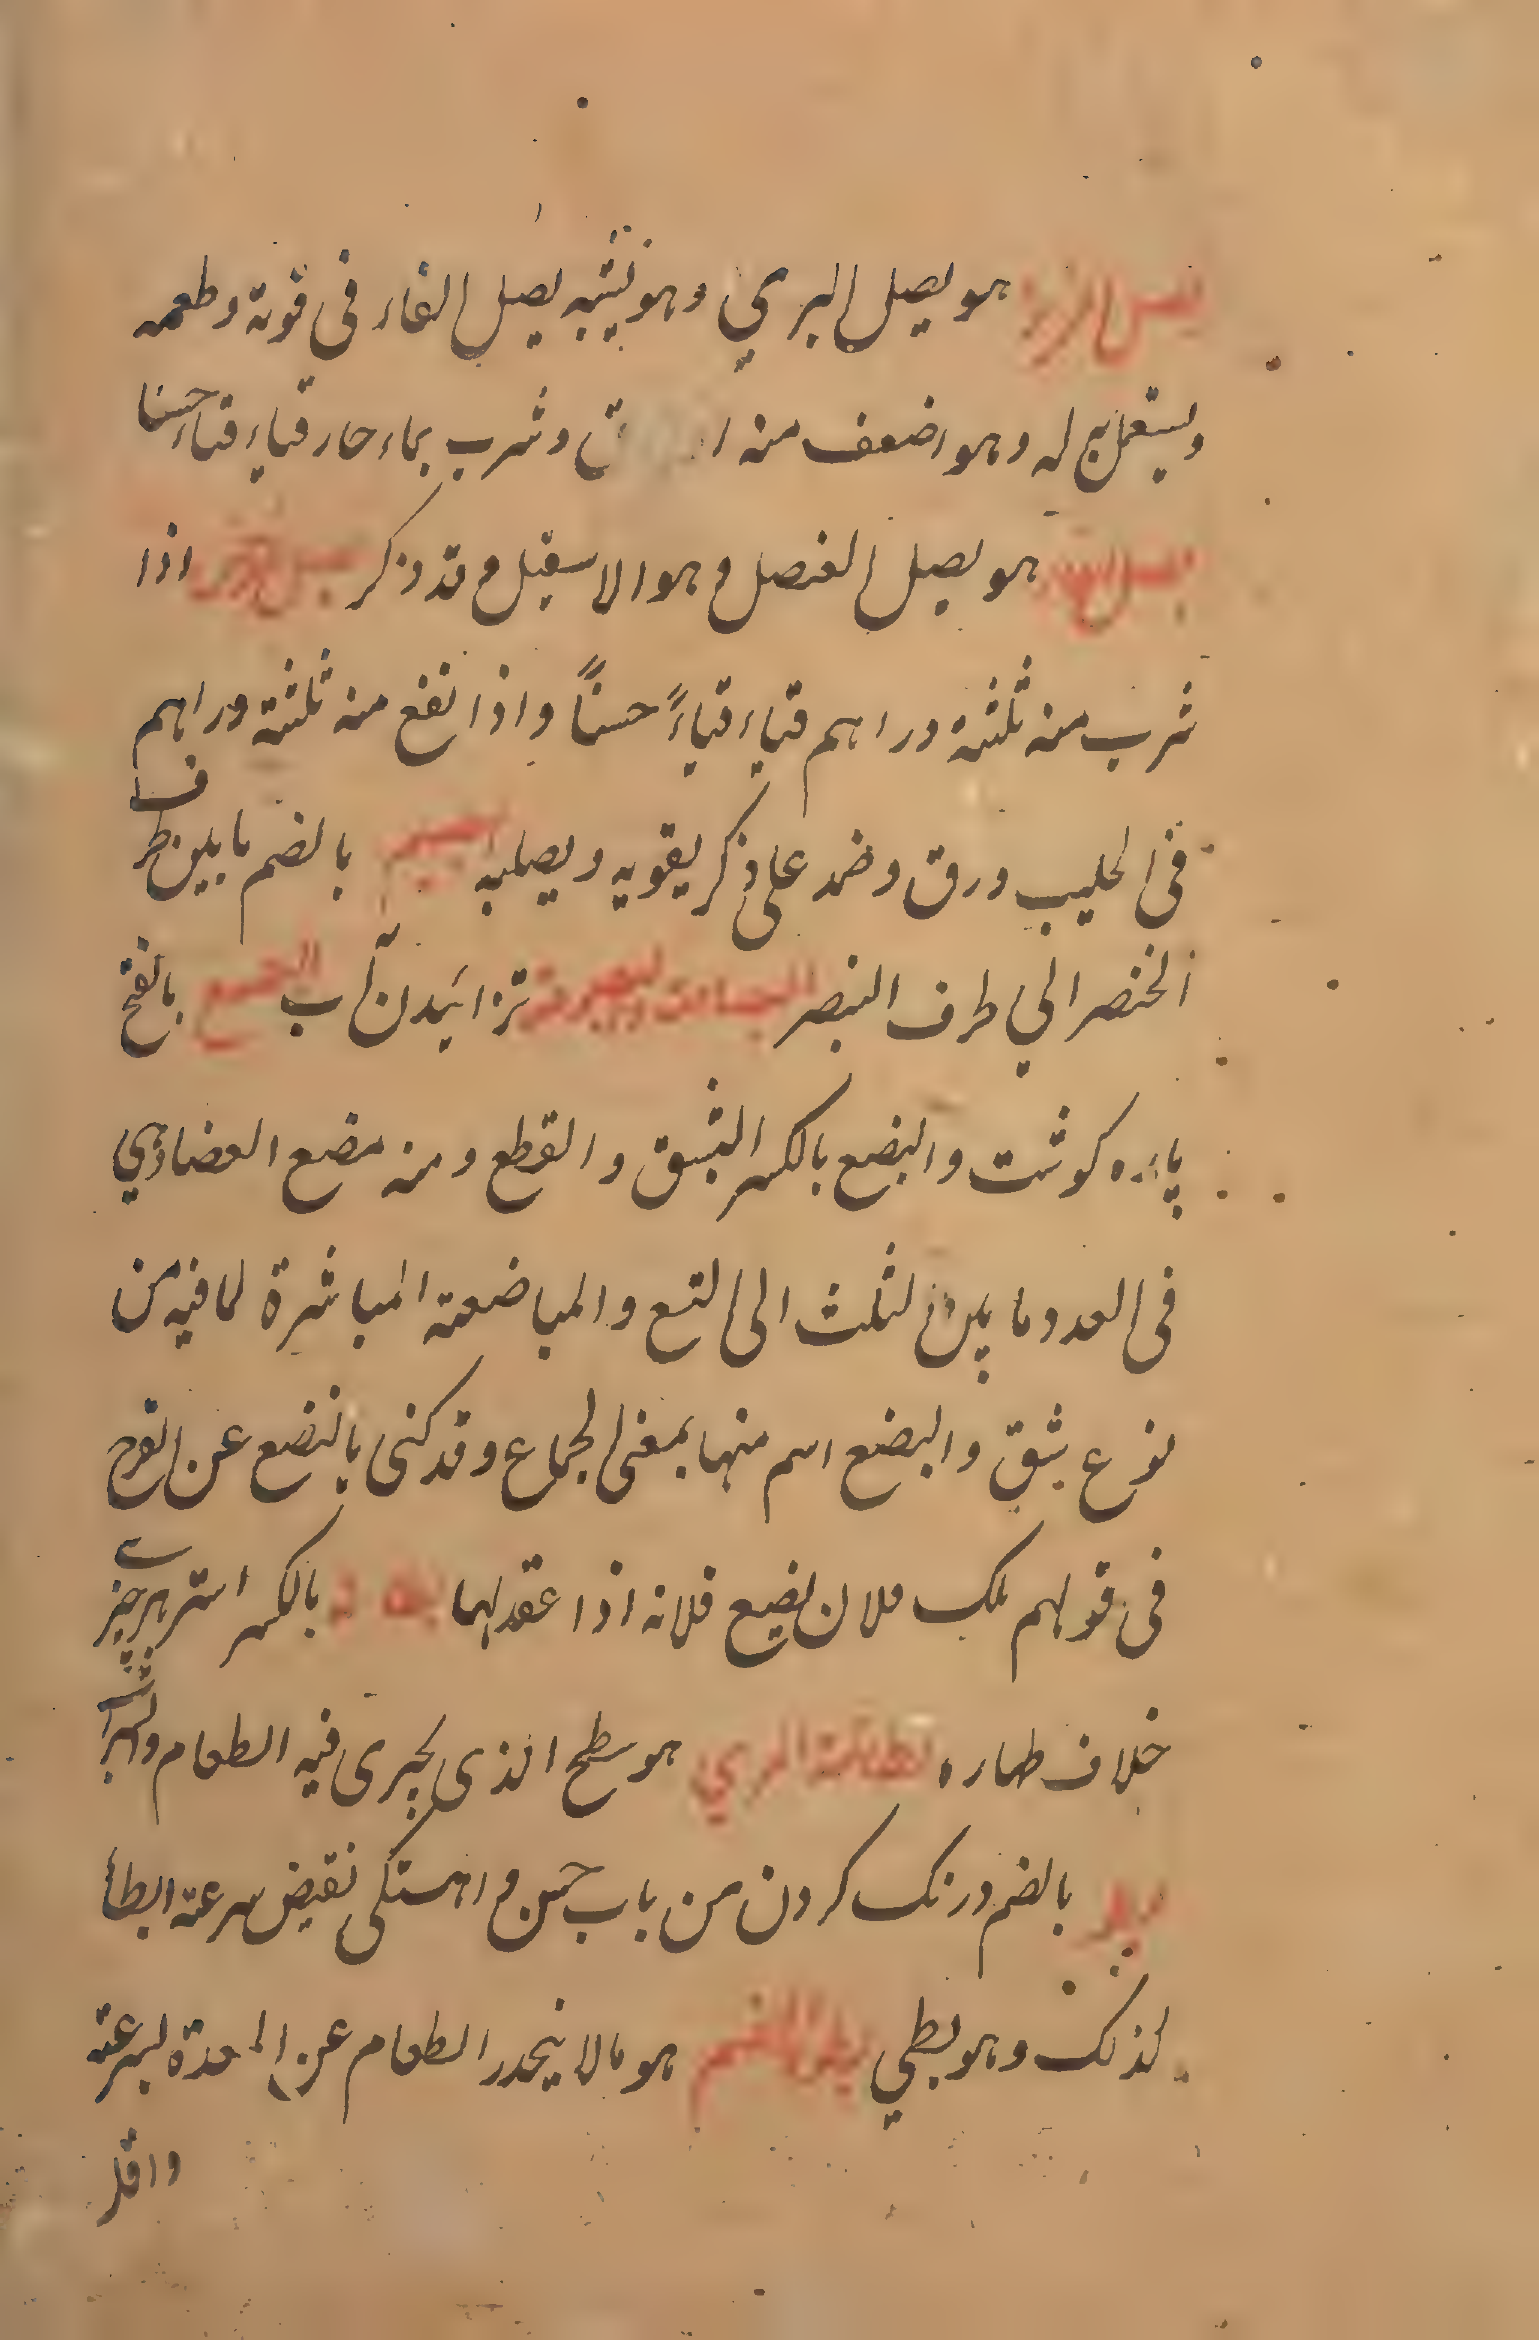 هو بصل البري وهو يشبه بصل الفاء في قوته وطعمه
ويستعمل بدله وهو اضعف منه وشرب بماء حار قياء قياء حسنا
هو بصل العنصل وهو الاسقيل وقد ذكر اذا
شرب منه ثلثة دراهم قياء قياءً حسناً واذا نقع منه ثلثة دراهم
في الحليب ورق وضمد على ذكر يقويه ويصلبه بالضم ما بين طرف
الخنصر الي طرف البنصر تزائيدن آب البضع بالفتح
پاره كوشت والبضع بالكسر الشق والقطع ومنه مضع العضادي
في العدد ما بين الثلث الى التسع والمباضعة المباشرة لما فيه من
نوع شق والبضع اسم منها بمعنى الجماع وقد كنى بالبضع عن الفرج
في قولهم ملك فلان بضع فلانه اذا عقد لها بالكسر استر هر چيزے
خلاف طهاره بطانة المري هو سطح الذي يجرى فيه الطعام والشراب
بالضم درنك كردن من باب حسن واهستكى نقيض سرعة ابطا
كذلك وهو بطي بطؤ الهضم هو مالا ينحدر الطعام عن المعدة لسرعة
واقلر